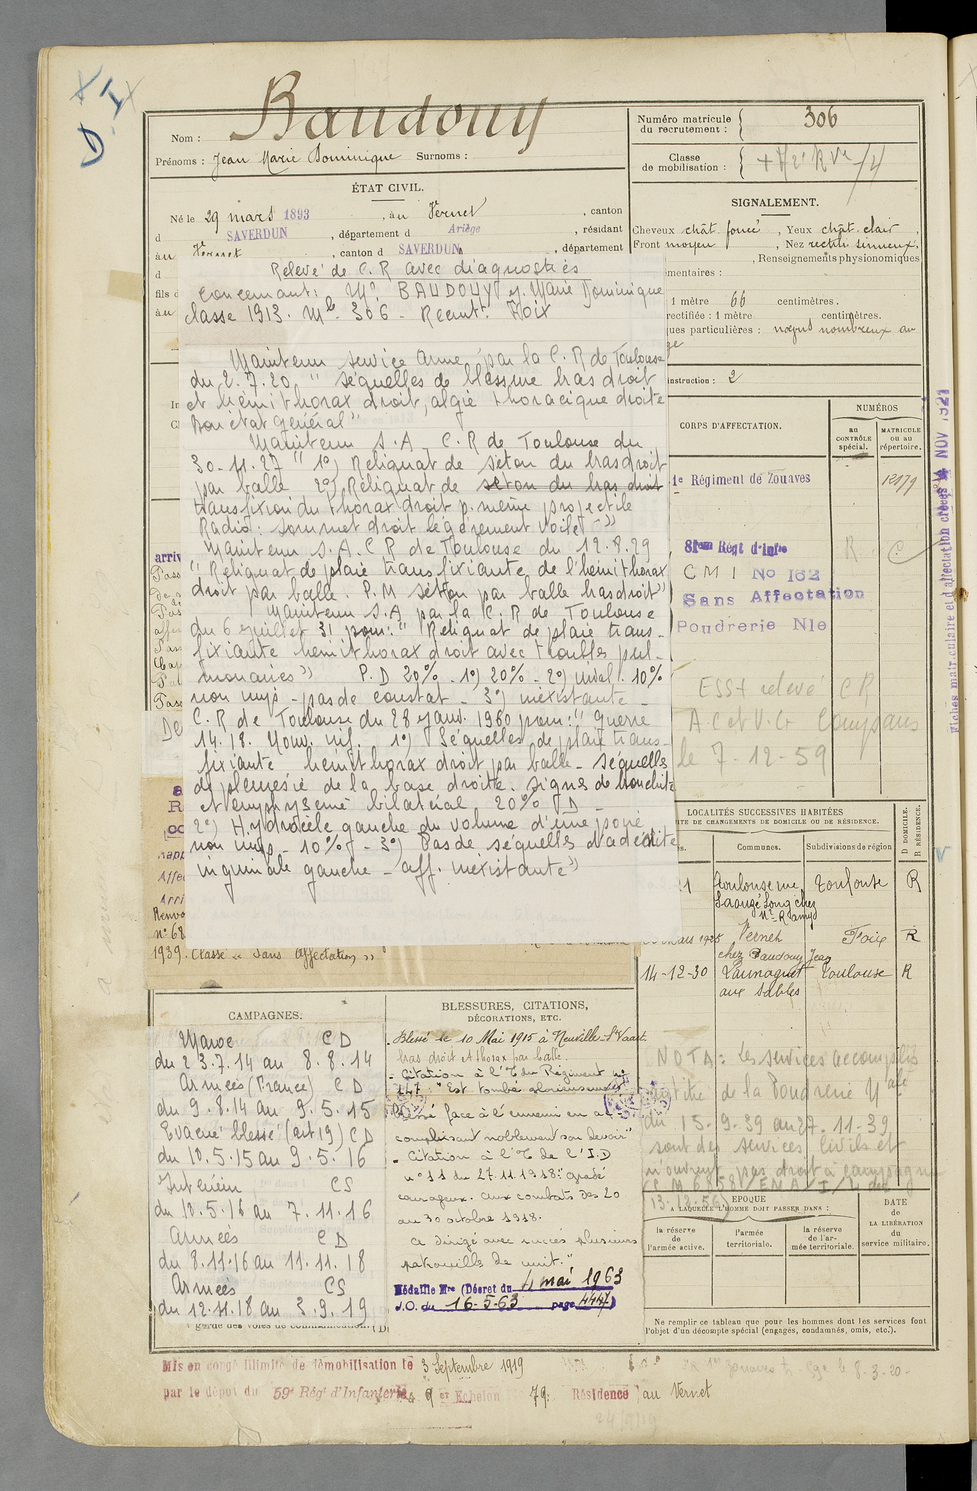 Nom : Baudouy
Prénoms : Jean Marie Dominique Surnoms :
Numéro matricule du recrutement : 306
Classe de mobilisation :
ÉTAT CIVIL.
Né le 29 mars 1893, à Vernet, canton
d SAVERDUN, département d Ariège, résidant
à Vernet, canton d SAVERDUN, département
d
fils d
SIGNALEMENT.
Cheveux chât. foncé, Yeux chât. clair,
Front moyen, Nez rectili sinueux,
Renseignements physionomiques
mentaires :
1 mètre 66 centimètres.
rectifiée : 1 mètre centimètres.
ques particulières : nœvus nombreux au
instruction : 2
Relevé de C.R avec diagnostics
Concernant : Mr BAUDOUY J. Marie Dominique
classe 1913. Mle 306 - Recrutt Foix
Maintenu service armé par la C.R de Toulouse
du 2.7.20 " séquelles de blessure bras droit
et hémithorax droit, algie thoracique droite
bon état général "
Maintenu S.A. C.R de Toulouse du
30-11-27 " 1°) Reliquat de séton du bras droit
par balle 2°) Reliquat de séton du bras droit
transfixion du thorax droit p. même projectile
Radio : sommet droit légèrement voilé - "
Maintenu S.A. C R de Toulouse du 12.8.29
" Reliquat de plaie transfixiante de l'hémithorax
droit par balle. P.M séton par balle bras droit "
Maintenu S.A par la C.R de Toulouse
du 6 juillet 31 pour : " Reliquat de plaie trans-
fixiante hémithorax droit avec troubles pul-
monaires " P.D 20% - 1°) 20% - 2°) inval. 10%
non imp - pas de constat - 3°) inexistante -
C.R de Toulouse du 28 janv. 1960 pour : " guerre
14.18. 1°) Séquelles de plaie trans-
fixiante hémithorax droit par balle - séquelles
de pleurésie de la base droite. signes de bronchite
et emphysème bilatéral 20% P D -
2°) Hydrocèle gauche du volume d'une poire
non imp - 10% - 3°) Pas de séquelles d'adénite
inguinale gauche - aff. inexistante "
CORPS D'AFFECTATION.
NUMÉROS
au contrôle spécial.
MATRICULE ou au répertoire.
1e Régiment de Zouaves
81ème Régt d'Infie
C M I No 162
Sans Affectation
Poudrerie Nle
ESS+ relevé CR
A.C et V.G Compans
le 7-12-59
Fiches matriculaire et d'affectation créées le NOV 1927
LOCALITÉS SUCCESSIVES HABITÉES
ITE DE CHANGEMENTS DE DOMICILE OU DE RÉSIDENCE.
Communes.
Subdivisions de région
D DOMICILE.
R RÉSIDENCE.
Toulouse rue Toulouse R
chez
Vernet Foix R
chez Baudouy Jean
14-12-30 Launaguet Toulouse R
aux sables
Renvo
n° 68
1939. Classé " Sans affectation "
CAMPAGNES.
Maroc C D
du 23.7.14 au 8.8.14
Armées (France) C D
du 9.8.14 au 9.5.15
Evacué blessé (art 19) C D
du 10.5.15 au 9.5.16
Intérieur C S
du 10.5.16 au 7.11.16
Armées C D
du 8.11.16 au 11.11.18
Armées C S
du 12.11.18 au 3.9.19
garde des voies de communication. (D)
BLESSURES, CITATIONS,
DÉCORATIONS, ETC.
Blessé le 10 Mai 1915 à Neuville-St Vaast
bras droit et thorax par balle.
- Citation à l'O du Régiment n°
147 : " Est tombé glorieusement
blessé face à l'ennemi en ac-
complissant noblement son devoir "
- Citation à l'O de l'I.D
n° 11 du 27.11.1918 : gradé
courageux. aux combats des 20
au 30 octobre 1918.
a dirigé avec succès plusieurs
patrouilles de nuit. "
Médaille Mre (Décret du 4 mai 1963
J.O. du 16-5-63 page 4447)
NOTA : Les services accomplis
au titre de la Poudrerie Nale
du 15.9.39 au 27.11.39
sont des services civils et
n'ouvrent pas droit à campagne
13-12-56)
EPOQUE
A LAQUELLE L'HOMME DOIT PASSER DANS :
la réserve de l'armée active.
l'armée territoriale.
la réserve de l'armée territoriale.
DATE DE LA LIBÉRATION du service militaire.
Ne remplir ce tableau que pour les hommes dont les services font
l'objet d'un décompte spécial (engagés, condamnés, omis, etc.).
Mis en congé illimité de démobilisation le 3 Septembre 1919
par le dépôt du 59e Régt d'Infanterie 9 Echelon 79: Résidence au Vernet